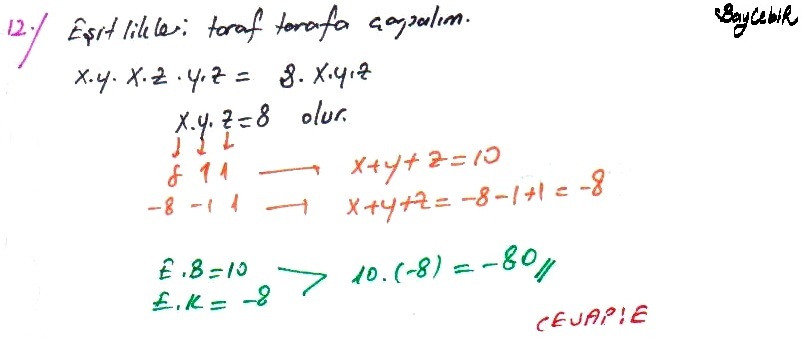 12-)
Eşitlikleri taraf tarafa çarpalım.
BayCebiR
x.y. x.z . y.z = 8. x.y.z
x.y.z=8 olur.
↓ ↓ ↓
8 1 1 → x+y+z=10
-8 -1 1 → x+y+z= -8-1+1 = -8
E.B=10
E.K= -8
> 10.(-8) = -80//
CEVAP:E